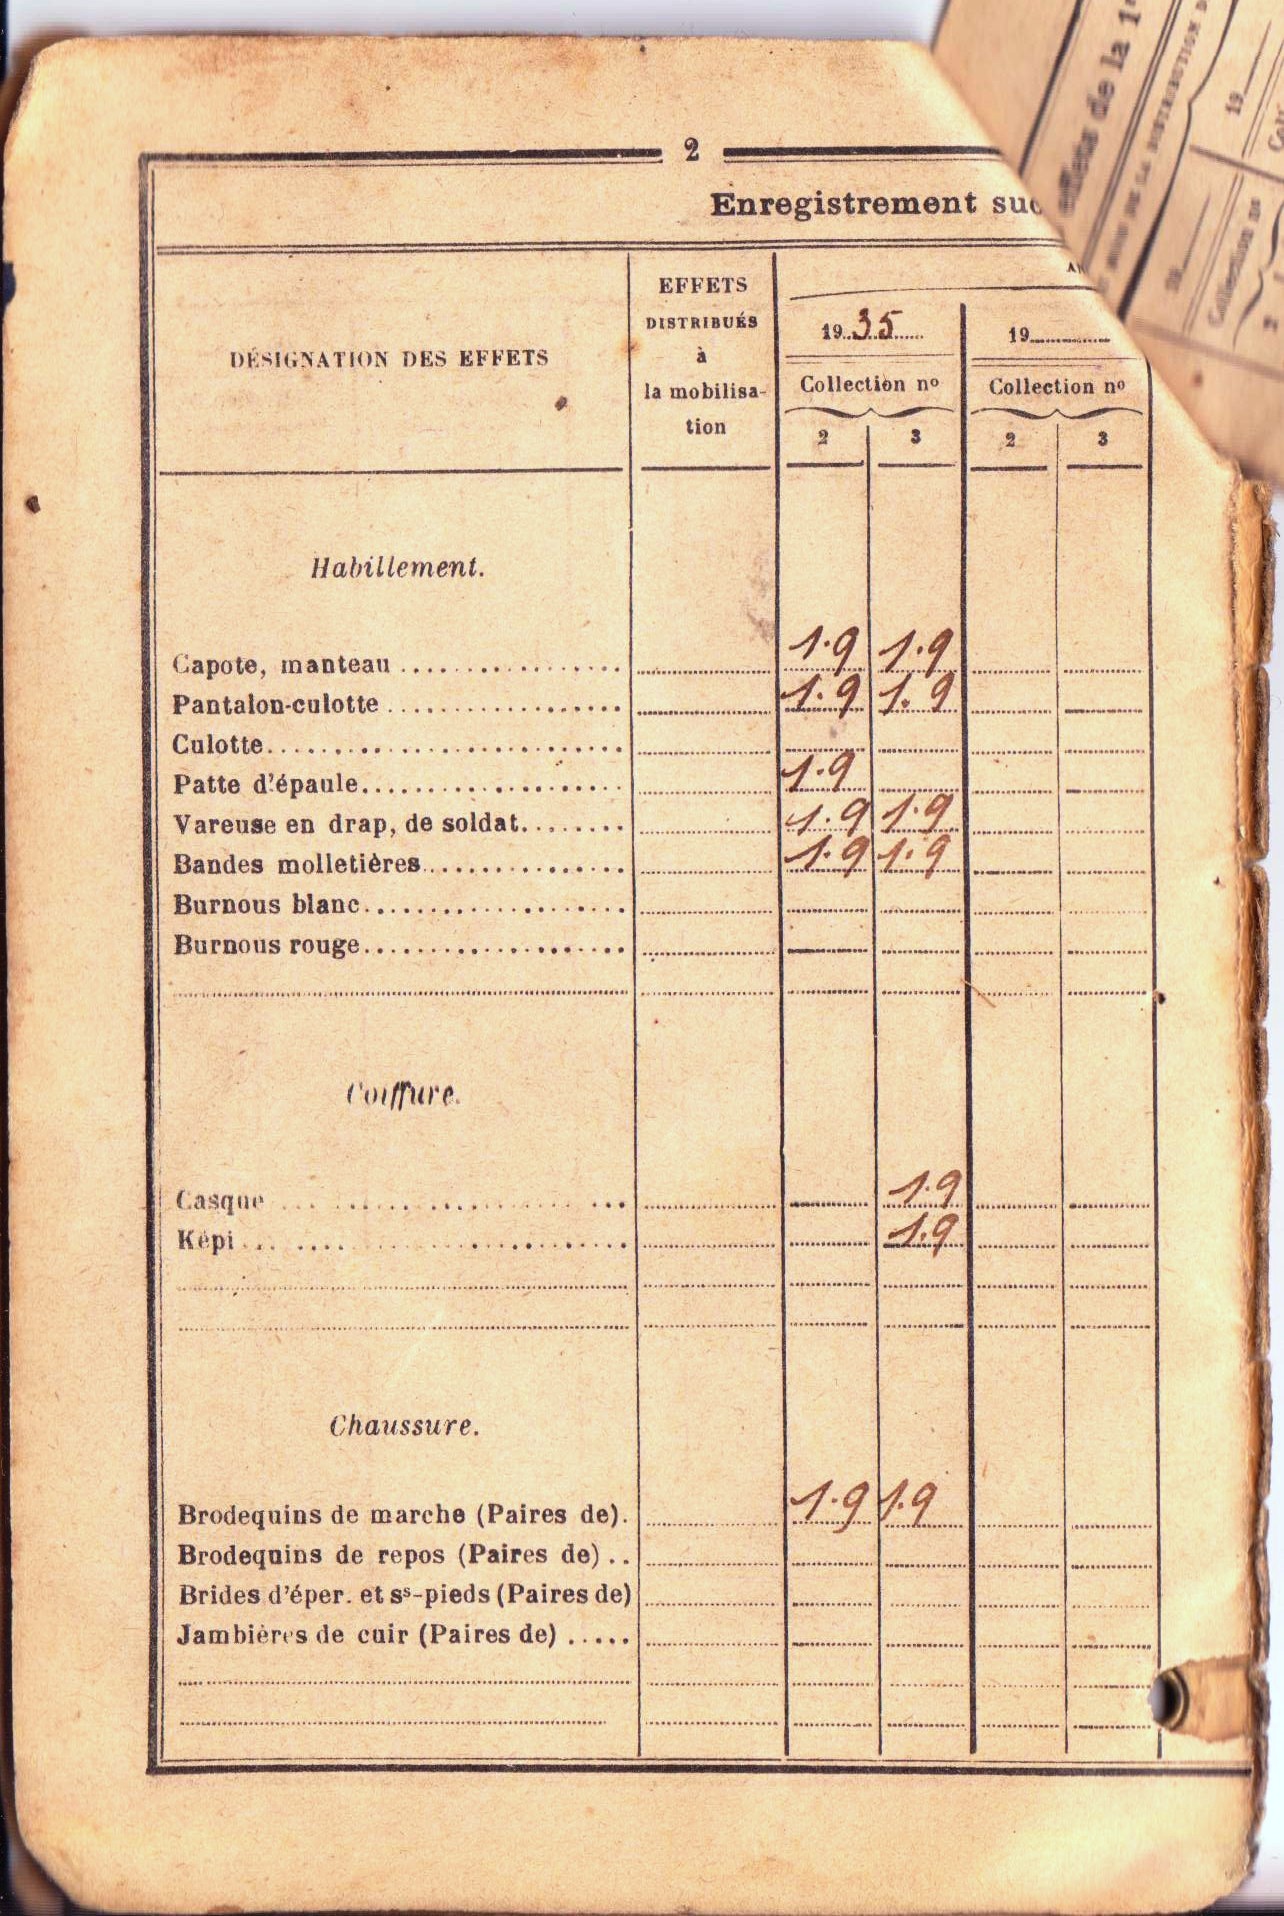 2
Enregistrement suc
DÉSIGNATION DES EFFETS
EFFETS
DISTRIBUÉS
à
la mobilisa-
tion
19 35
19
Collection nº
Collection nº
2 3 2 3
Habillement.
Capote, manteau 1.9 1.9
Pantalon-culotte 1.9 1.9
Culotte
Patte d'épaule 1.9
Vareuse en drap, de soldat 1.9 1.9
Bandes molletières 1.9 1.9
Burnous blanc
Burnous rouge
Coiffure.
Casque 1.9
Képi 1.9
Chaussure.
Brodequins de marche (Paires de). 1.9 1.9
Brodequins de repos (Paires de)
Brides d'éper. et sˢ-pieds (Paires de)
Jambières de cuir (Paires de)
effets de la 1
DE LA DISTRIBUTION D
19
19
Collection
2